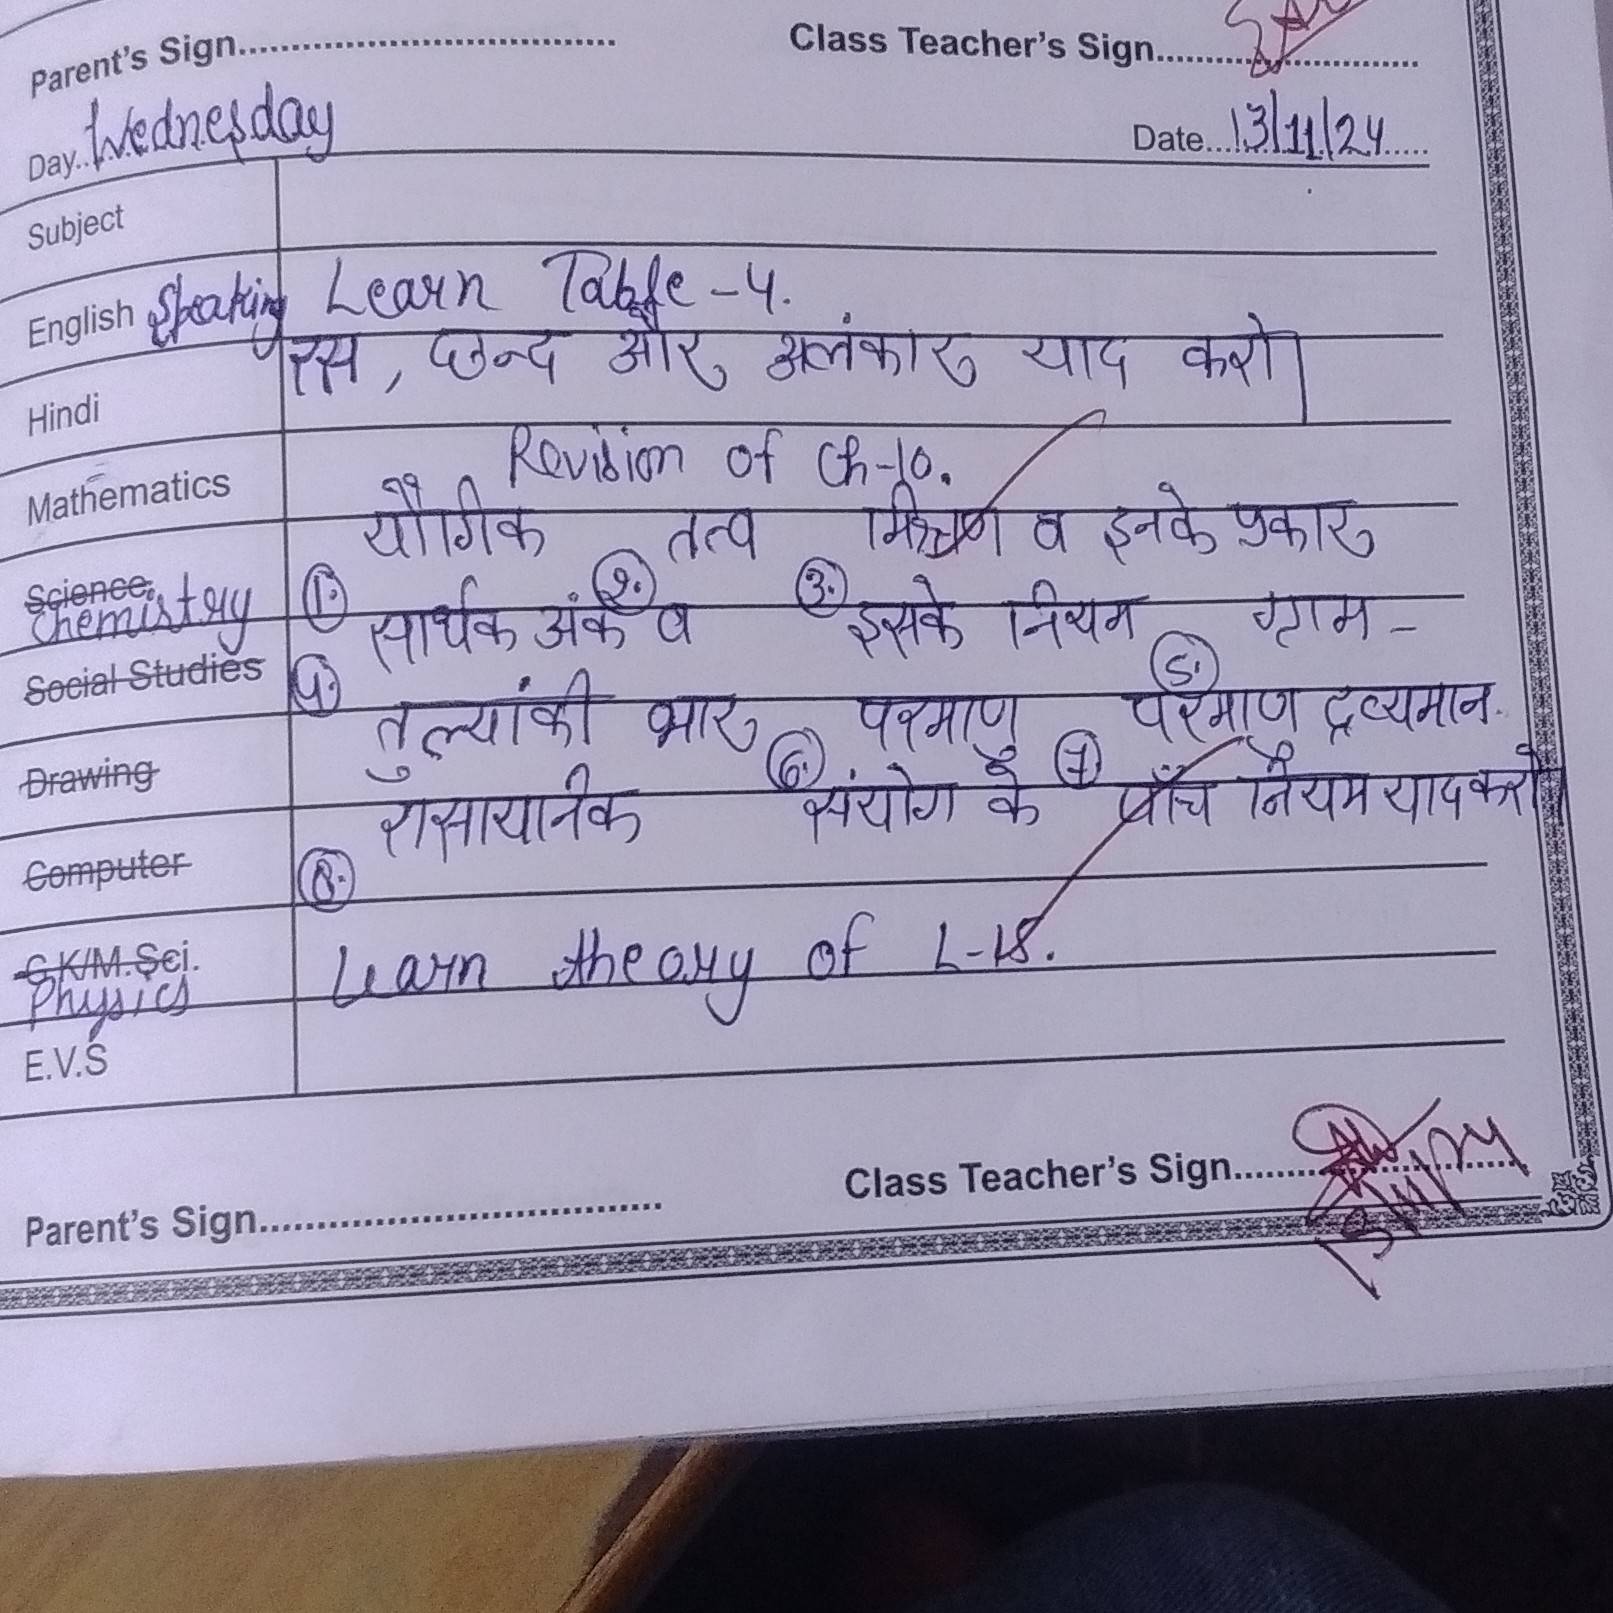 Parent's Sign........................................ Class Teacher's Sign..............................
Day..Wednesday Date...13/11/24.....
Subject
English Speaking Learn Table-4.
Hindi रस, छन्द और अलंकार याद करो।
Mathematics Revision of Ch-10.
Science. Chemistry ① यौगिक ② तत्व ③ मिश्रण व इनके प्रकार
Social Studies ④ सार्थक अंक व इसके नियम ⑤ ग्राम-
Drawing तुल्यांकी भार ⑥ परमाणु ⑦ परमाणु द्रव्यमान.
Computer ⑧ रासायनिक संयोग के पाँच नियम याद करो।
G.K/M.Sci. Physics Learn theory of L-18.
E.V.S
Parent's Sign........................................ Class Teacher's Sign..............................